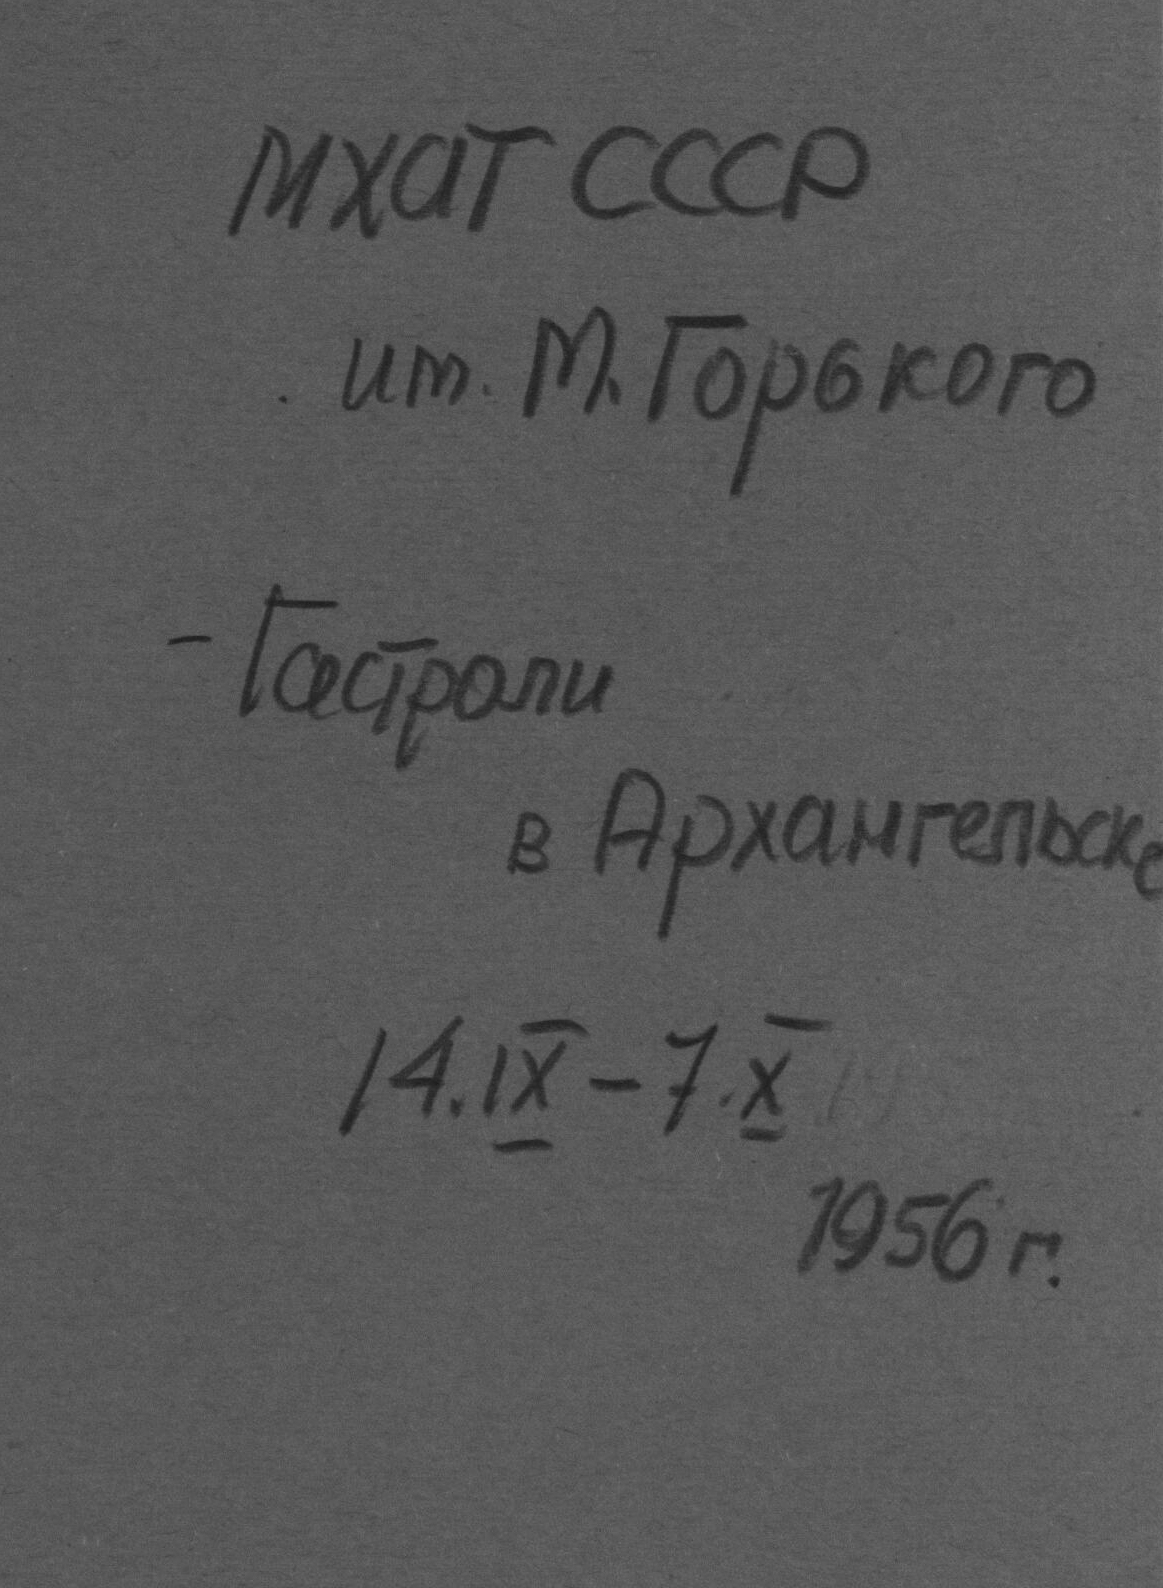 МХАТ СССР
им. М. Горького
- Гастроли
в Архангельске
14.IX - 7.X
1956 г.